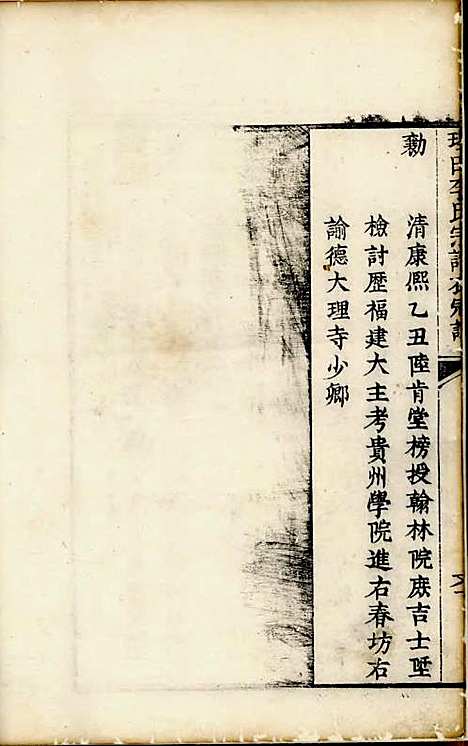 勷
清康熙乙丑陸肯堂榜授翰林院庶吉士陞
檢討歷福建大主考貴州學院進右春坊右
諭德大理寺少卿